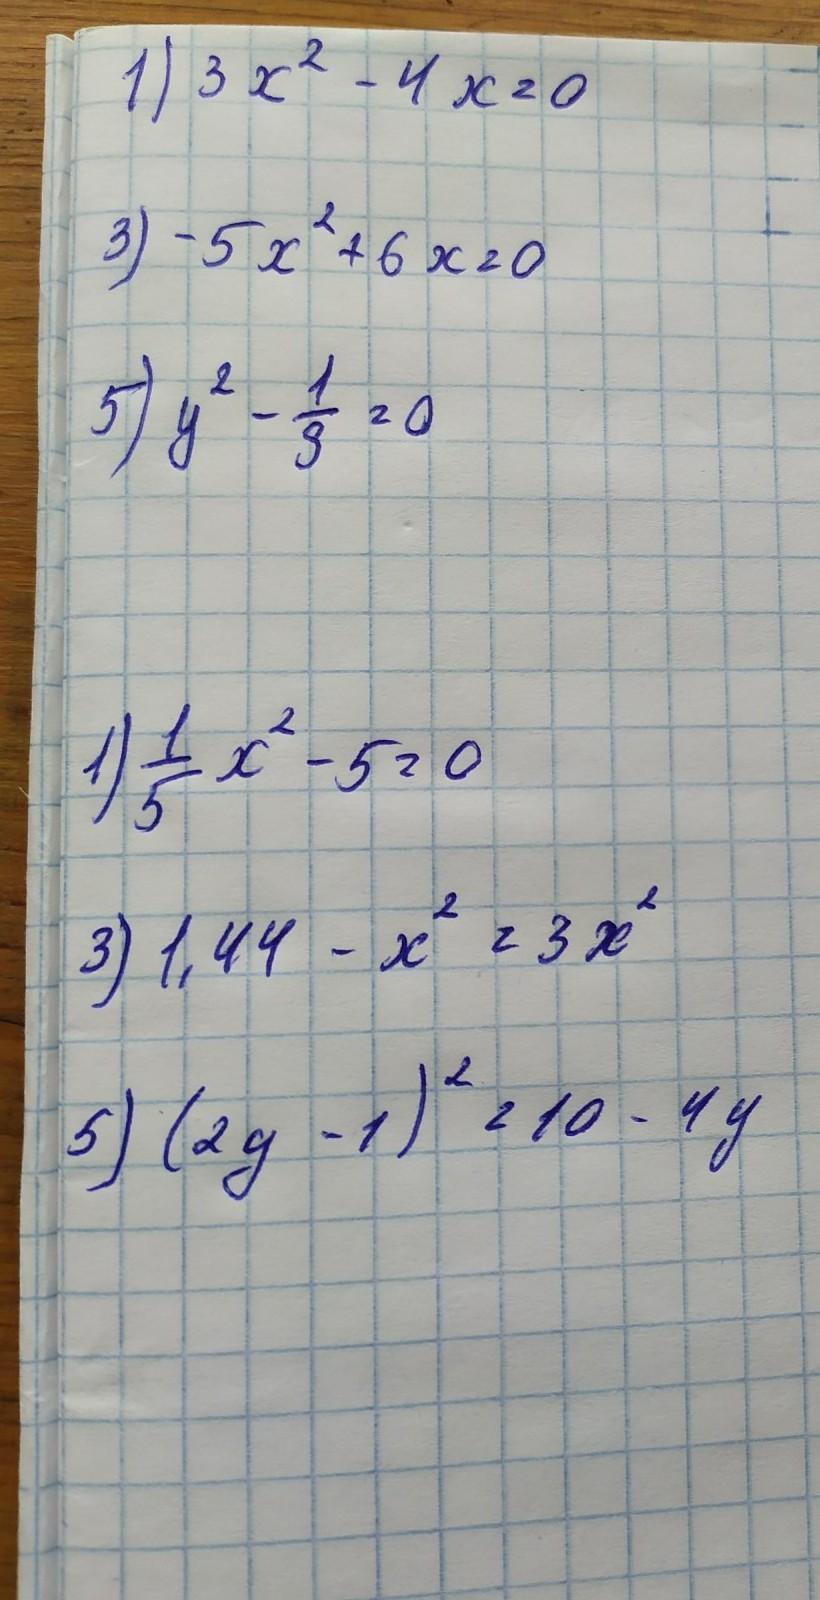 1) 3x² - 4x = 0
3) -5x² + 6x = 0
5) y² - 1/9 = 0
1) 1/5 x² - 5 = 0
3) 1,44 - x² = 3x²
5) (2y - 1)² = 10 - 4y